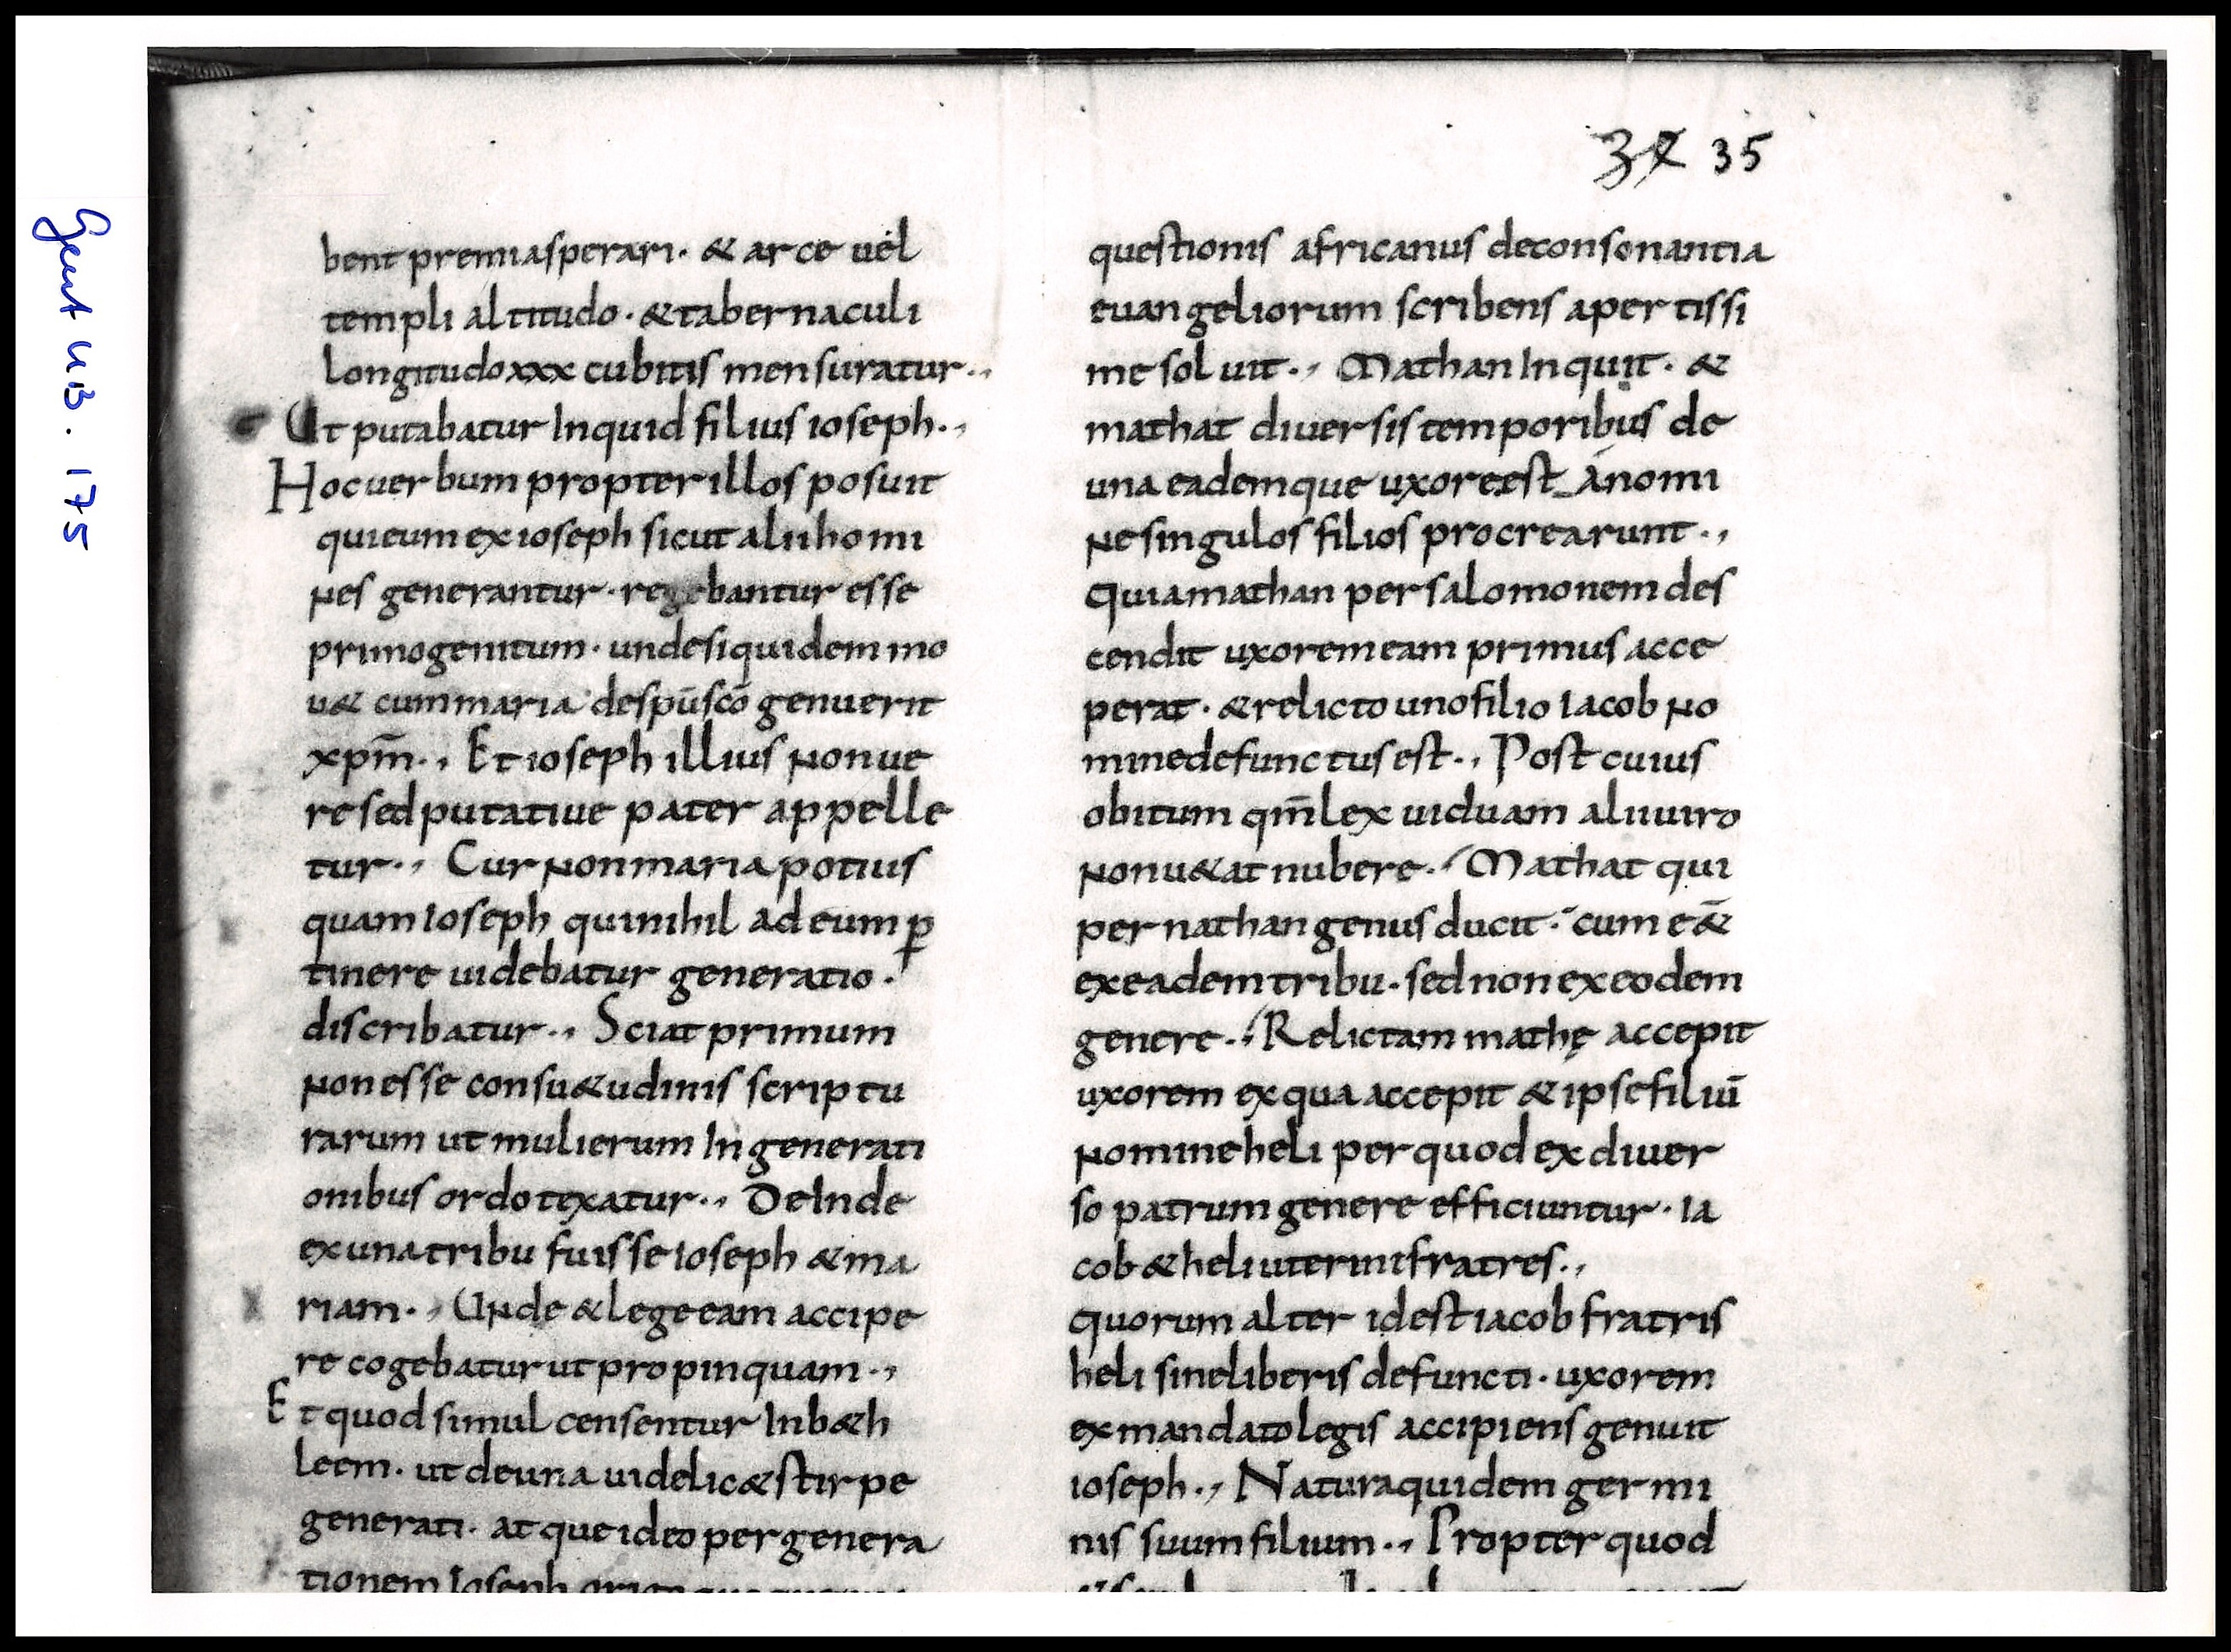 Gent UB. 175
37 35
bent premia sperari. & arce uel
templi altitudo. & tabernaculi
longitudo xxx cubitis mensuratur.,
Ut putabatur Inquid filius ioseph.,
Hoc uerbum propter illos posuit
qui eum ex ioseph sicut alii homi
nes generantur. rebantur esse
primogenitum. unde siquidem mo
u& cum maria de spu sco genuerit
xpm., Et ioseph illius non ue
re sed putatiue pater appelle
tur., Cur non maria potius
quam Ioseph qui nihil ad eum p
tinere uidebatur generatio.
discribatur., Sciat primum
non esse consu&udinis scriptu
rarum ut mulierum In generati
onibus ordo texatur., DeInde
ex una tribu fuisse Ioseph & ma
riam., Unde & lege eam accipe
re cogebatur ut propinquam.,
Et quod simul censentur In b&h
leem. ut de una uidelic& stirpe
generati. atque ideo per genera
tionem Ioseph
questionis africanus de consonantia
euangeliorum scribens apertissi
me soluit., Mathan Inquit. &
mathat diuersis temporibus de
una eademque uxore est_A nomi
ne singulos filios procrearunt.,
Quia mathan per salomonem des
cendit uxorem eam primus acce
perat. & relicto uno filio Iacob no
mine defunctus est., Post cuius
obitum qm lex uiduam alii uiro
non u&at nubere. Mathat qui
per nathan genus ducit. cum e&
ex eadem tribu. sed non ex eodem
genere. Relictam mathę accepit
uxorem ex qua accepit & ipse filiū
nomine heli per quod ex diuer
so patrum genere efficiuntur. Ia
cob & heli uterini fratres.,
quorum alter id est iacob fratris
heli sine liberis defuncti. uxorem
ex mandato legis accipiens genuit
ioseph., Natura quidem germi
nis suum filium., Propter quod